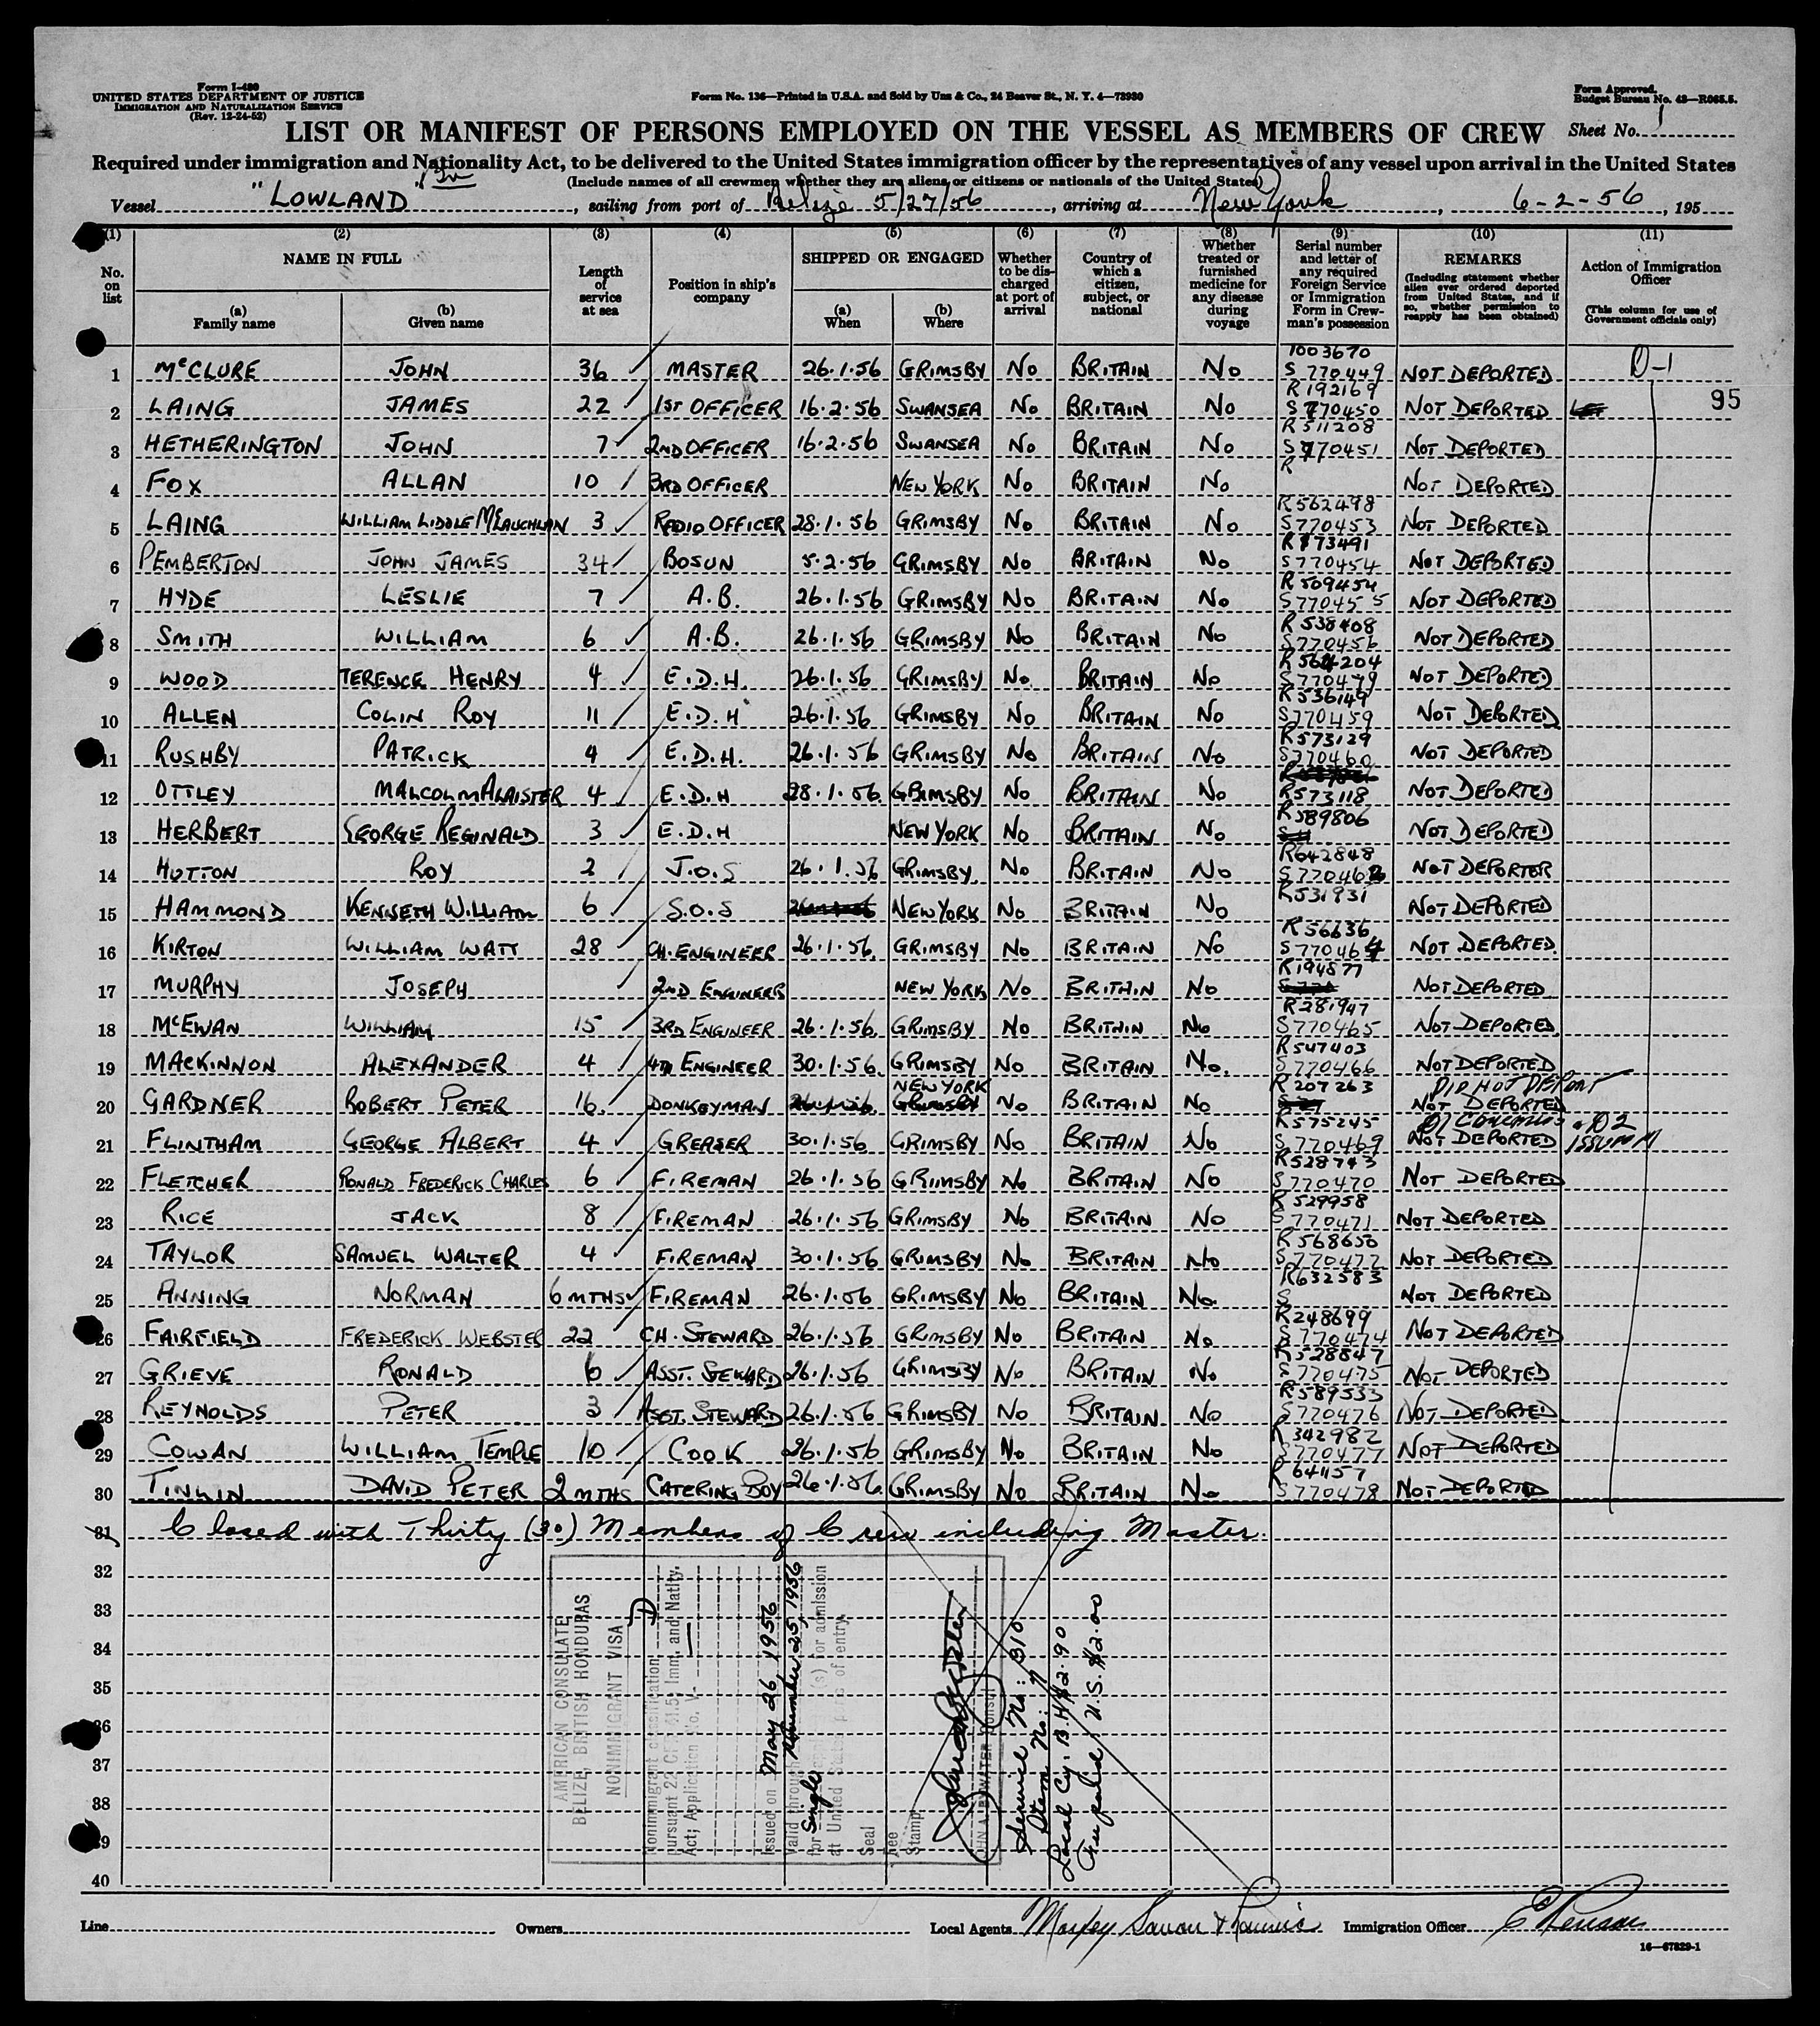 Form I-480
UNITED STATES DEPARTMENT OF JUSTICE
IMMIGRATION AND NATURALIZATION SERVICE
(Rev. 12-24-52)
Form No. 136—Printed in U.S.A. and Sold by Unz & Co., 24 Beaver St., N. Y. 4—73930
Form Approved.
Budget Bureau No. 43—R065.5.
LIST OR MANIFEST OF PERSONS EMPLOYED ON THE VESSEL AS MEMBERS OF CREW Sheet No. 1
Required under immigration and Nationality Act, to be delivered to the United States immigration officer by the representatives of any vessel upon arrival in the United States
(Include names of all crewmen whether they are aliens or citizens or nationals of the United States)
Vessel "LOWLAND", sailing from port of Belize 5/27/56, arriving at New York, 6-2-56, 195
(1) (2) (3) (4) (5) (6) (7) (8) (9) (10) (11)
No. on list
NAME IN FULL
(a) Family name
(b) Given name
Length of service at sea
Position in ship's company
SHIPPED OR ENGAGED
(a) When
(b) Where
Whether to be discharged at port of arrival
Country of which a citizen, subject, or national
Whether treated or furnished medicine for any disease during voyage
Serial number and letter of any required Foreign Service or Immigration Form in Crewman's possession
REMARKS
(Including statement whether alien ever ordered deported from United States, and if so, whether permission to reapply has been obtained)
Action of Immigration Officer
(This column for use of Government officials only)
1 McCLURE JOHN 36 MASTER 26.1.56 GRIMSBY No BRITAIN No 1003670 S 770449 NOT DEPORTED D-1
95
2 LAING JAMES 22 1ST OFFICER 16.2.56 SWANSEA No BRITAIN No R192169 S770450 NOT DEPORTED
3 HETHERINGTON JOHN 7 2ND OFFICER 16.2.56 SWANSEA No BRITAIN No R511208 S770451 NOT DEPORTED
4 FOX ALLAN 10 3RD OFFICER NEW YORK No BRITAIN No R NOT DEPORTED
5 LAING WILLIAM LIDDLE McLAUCHLAN 3 RADIO OFFICER 28.1.56 GRIMSBY No BRITAIN No R562498 S770453 NOT DEPORTED
6 PEMBERTON JOHN JAMES 34 BOSUN 5.2.56 GRIMSBY No BRITAIN No S770454 NOT DEPORTED
7 HYDE LESLIE 7 A.B. 26.1.56 GRIMSBY No BRITAIN No R509454 S770455 NOT DEPORTED
8 SMITH WILLIAM 6 A.B. 26.1.56 GRIMSBY No BRITAIN No R538408 S770456 NOT DEPORTED
9 WOOD TERENCE HENRY 4 E.D.H. 26.1.56 GRIMSBY No BRITAIN No R564204 S770479 NOT DEPORTED
10 ALLEN COLIN ROY 11 E.D.H 26.1.56 GRIMSBY No BRITAIN No R536149 S770459 NOT DEPORTED
11 RUSHBY PATRICK 4 E.D.H. 26.1.56 GRIMSBY No BRITAIN No R573129 S770460 NOT DEPORTED
12 OTTLEY MALCOLM ALAISTER 4 E.D.H 28.1.56 GRIMSBY No BRITAIN No R573118 NOT DEPORTED
13 HERBERT GEORGE REGINALD 3 E.D.H NEW YORK No BRITAIN No R589806 NOT DEPORTED
14 HUTTON ROY 2 J.O.S 26.1.56 GRIMSBY No BRITAIN No R642848 NOT DEPORTER
15 HAMMOND KENNETH WILLIAM 6 S.O.S NEW YORK No BRITAIN No R531931 NOT DEPORTED
16 KIRTON WILLIAM WATT 28 CH. ENGINEER 26.1.56 GRIMSBY No BRITAIN No R56636 S770464 NOT DEPORTED
17 MURPHY JOSEPH 2ND ENGINEER NEW YORK No BRITAIN No R194877 NOT DEPORTED
18 McEWAN WILLIAM 15 3RD ENGINEER 26.1.56 GRIMSBY No BRITAIN No R281947 S770465 NOT DEPORTED
19 MACKINNON ALEXANDER 4 4TH ENGINEER 30.1.56 GRIMSBY No BRITAIN No. R547403 S770466 NOT DEPORTED
20 GARDNER ROBERT PETER 16 DONKEYMAN NEW YORK No BRITAIN No R207263 NOT DEPORTED DID NOT DEPART
21 FLINTHAM GEORGE ALBERT 4 GREASER 30.1.56 GRIMSBY No BRITAIN No R575245 S770469 NOT DEPORTED D2
22 FLETCHER RONALD FREDERICK CHARLES 6 FIREMAN 26.1.56 GRIMSBY No BRITAIN No R528743 S770470 NOT DEPORTED
23 RICE JACK 8 FIREMAN 26.1.56 GRIMSBY No BRITAIN No R529958 S770471 NOT DEPORTED
24 TAYLOR SAMUEL WALTER 4 FIREMAN 30.1.56 GRIMSBY No BRITAIN No R568650 S770472 NOT DEPORTED
25 ANNING NORMAN 6 MTHS FIREMAN 26.1.56 GRIMSBY No BRITAIN No. R632583 S NOT DEPORTED
26 FAIRFIELD FREDERICK WEBSTER 22 CH. STEWARD 26.1.56 GRIMSBY No BRITAIN No R248699 S770474 NOT DEPORTED
27 GRIEVE RONALD 6 ASST. STEWARD 26.1.56 GRIMSBY No BRITAIN No R528847 S770475 NOT DEPORTED
28 REYNOLDS PETER 3 ASST. STEWARD 26.1.56 GRIMSBY No BRITAIN No R589533 S770476 NOT DEPORTED
29 COWAN WILLIAM TEMPLE 10 COOK 26.1.56 GRIMSBY No BRITAIN No R342982 S770477 NOT DEPORTED
30 TINLIN DAVID PETER 2 MTHS CATERING BOY 26.1.56 GRIMSBY No BRITAIN No R641157 S770478 NOT DEPORTED
31 Closed with Thirty (30) Members of Crew including Master.
32
33
34
35
36
37
38
39
40
AMERICAN CONSULATE
BELIZE, BRITISH HONDURAS
NONIMMIGRANT VISA
Nonimmigrant classification D
pursuant 22 CFR 41.5 Imm. and Natlty.
Act; Application No. V-
Issued on May 26, 1956
Valid through November 25, 1956
for Single application(s) for admission
at United States ports of entry.
Seal
Fee
Stamp
Consul
Service No: 310
Item No:
Local Cy. B.H.$2.90
Fee paid: U.S. $2.00
Line Owners Local Agents Immigration Officer
16—67829-1